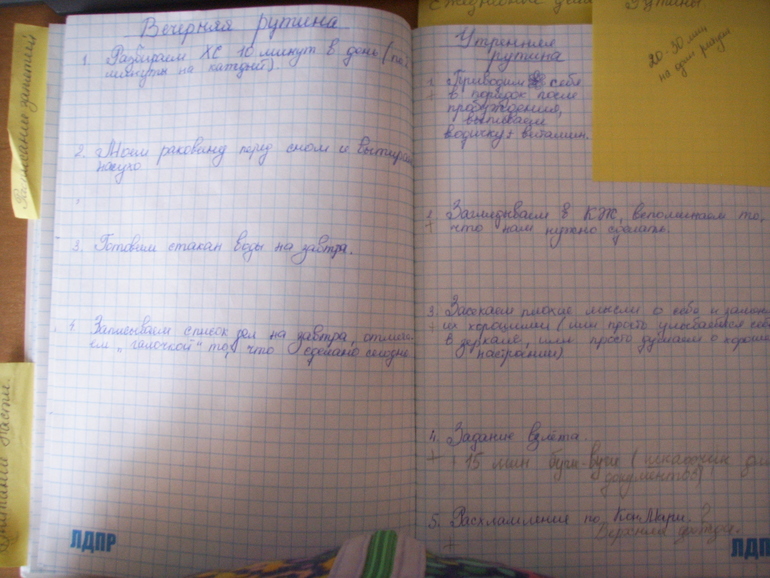 Вечерняя рутина
1. Разбираем ХС 10 минут в день (по 2
минуты на каждый)
2. Моем раковину перед сном и вытираем
насухо.
3. Готовим стакан воды на завтра.
4. Записываем список дел на завтра, отмеча-
ем "галочкой" то, что сделано сегодня.
ЛДПР
Расписание занятий
Питание Насти.
Ежедневные дела
Рутины.
20-30 мин
на один
Утренняя
рутина
1. Приводим себя
+ в порядок после
пробуждения,
выпиваем
водичку + витамин.
2. Заглядываем в КЖ, вспоминаем то,
+ что нам нужно сделать.
3. Засекаем плохие мысли о себе и заменяем
+ их хорошими (или просто улыбаемся себе
в зеркале, или просто думаем о хорошем
настроении)
4. Задание взлёта.
+ + 15 мин буги-вуги ( для
документов)
5. Расхламление по КонМари. ?
+ Верхняя одежда.
ЛДПР